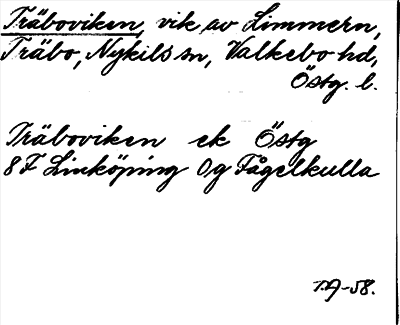 Träboviken, vik av Limmern,
Träbo, Nykils sn, Valkebo hd,
Östg. l.
Träboviken ek Östg
8F Linköping 0g Fågelkulla
T.A-58.